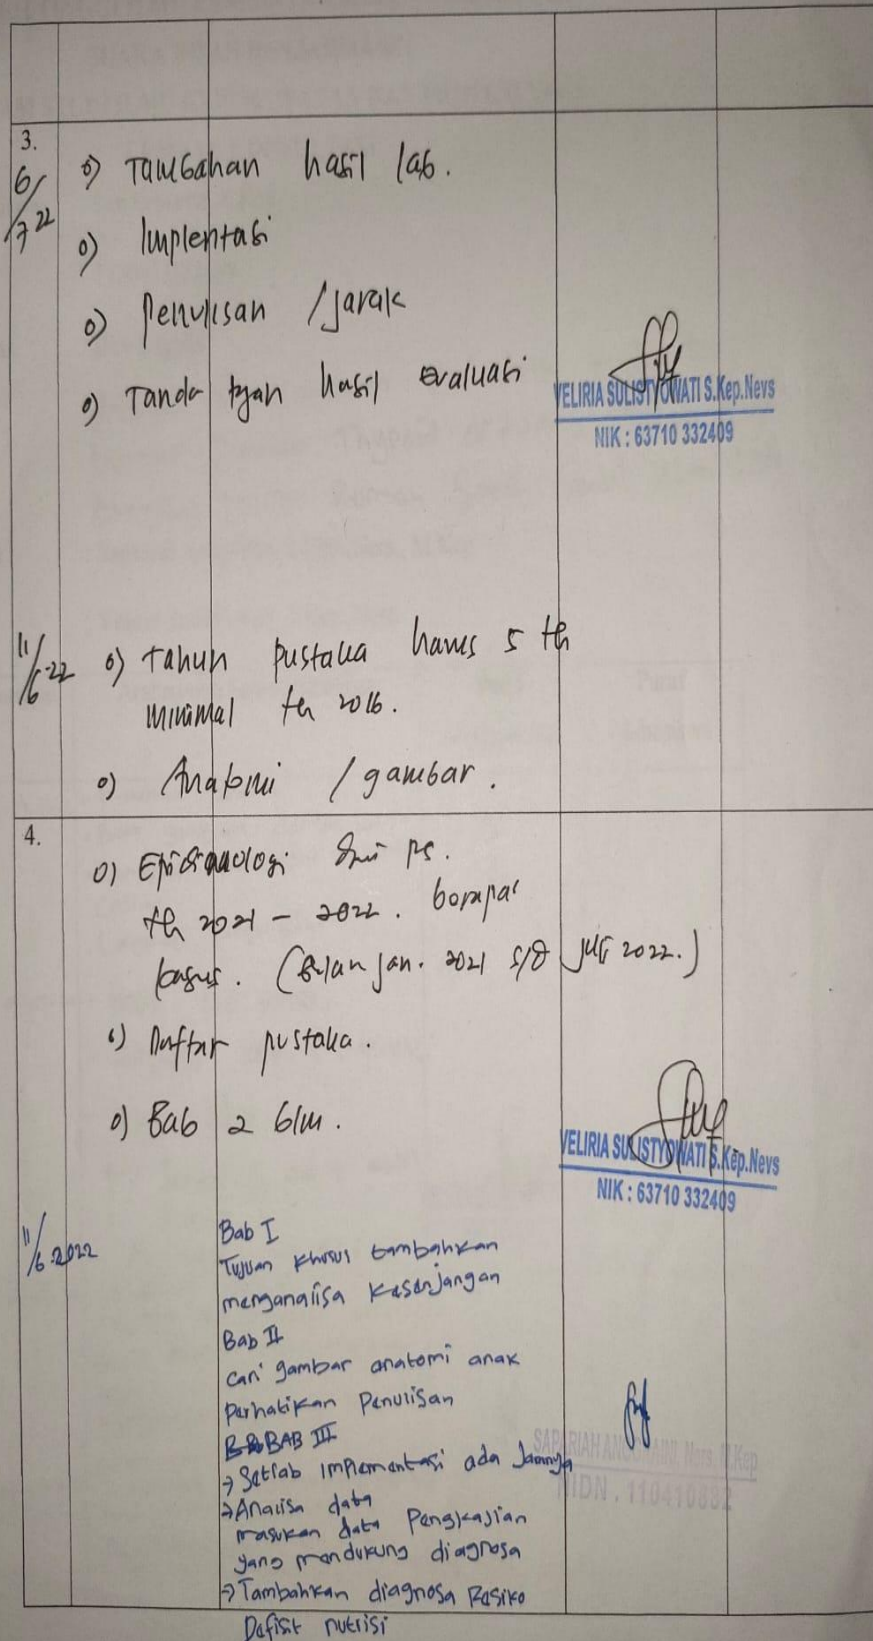 3.
6/7 22
o) Tambahan hasil lab.
o) Implentasi
o) Penulisan / jarak
o) Tanda tgan hasil evaluasi
VELIRIA SULISTYOWATI S.Kep.Nevs
NIK : 63710 332409
11/6-22
o) Tahun pustaka harus 5 th
minimal th 2016.
o) Anatomi / gambar.
4.
o) Epidemologi dari ps.
th 2021 - 2022. berapa
kasus. (Bulan Jan. 2021 s/d Juli 2022.)
o) Daftar pustaka.
o) Bab 2 blm.
VELIRIA SULISTYOWATI S.Kep.Nevs
NIK : 63710 332409
11/6.2022
Bab I
Tujuan khusus tambahkan
menganalisa kesenjangan
Bab II
cari gambar anatomi anak
Perhatikan Penulisan
BAB III
→ Setiab implementasi ada Jamnya
SAPARIAH ANGGRAINI, Ners, M.Kep
NIDN . 110410832
→ Analisa data
masukan data Pengkajian
yang mendukung diagnosa
→ Tambahkan diagnosa Resiko
Defisit nutrisi